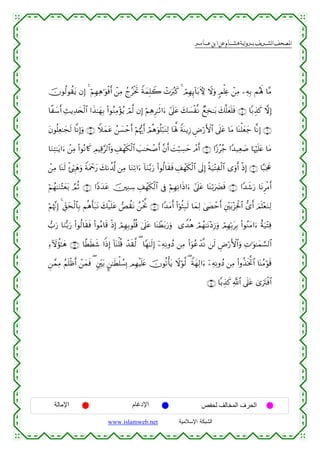 المصحف الشريف برواية هشام عن ابن عامر
مَّا لَهُم بِهِۦ مِنْ عِلْمٍ وَلَا لِأٓبَآئِهِمْ ۚ كَبُرَتْ كَلِمَةً تَخْرُجُ مِنْ أَفْوَٰهِهِمْ ۚ إِن يَقُولُونَ
إِلَّا كَذِبًا ۝ فَلَعَلَّكَ بَٰخِعٌ نَّفْسَكَ عَلَىٰٓ ءَاثَٰرِهِمْ إِن لَّمْ يُؤْمِنُوا۟ بِهَٰذَا ٱلْحَدِيثِ أَسَفًا
۝ إِنَّا جَعَلْنَا مَا عَلَى ٱلْأَرْضِ زِينَةً لَّهَا لِنَبْلُوَهُمْ أَيُّهُمْ أَحْسَنُ عَمَلًا ۝ وَإِنَّا لَجَٰعِلُونَ
مَا عَلَيْهَا صَعِيدًا جُرُزًا ۝ أَمْ حَسِبْتَ أَنَّ أَصْحَٰبَ ٱلْكَهْفِ وَٱلرَّقِيمِ كَانُوا۟ مِنْ ءَايَٰتِنَا
عَجَبًا ۝ إِذْ أَوَى ٱلْفِتْيَةُ إِلَى ٱلْكَهْفِ فَقَالُوا۟ رَبَّنَآ ءَاتِنَا مِن لَّدُنكَ رَحْمَةً وَهَيِّئْ لَنَا مِنْ
أَمْرِنَا رَشَدًا ۝ فَضَرَبْنَا عَلَىٰٓ ءَاذَانِهِمْ فِى ٱلْكَهْفِ سِنِينَ عَدَدًا ۝ ثُمَّ بَعَثْنَٰهُمْ
لِنَعْلَمَ أَىُّ ٱلْحِزْبَيْنِ أَحْصَىٰ لِمَا لَبِثُوٓا۟ أَمَدًا ۝ نَّحْنُ نَقُصُّ عَلَيْكَ نَبَأَهُم بِٱلْحَقِّ ۚ إِنَّهُمْ
فِتْيَةٌ ءَامَنُوا۟ بِرَبِّهِمْ وَزِدْنَٰهُمْ هُدًى ۝ وَرَبَطْنَا عَلَىٰ قُلُوبِهِمْ إِذْ قَامُوا۟ فَقَالُوا۟ رَبُّنَا رَبُّ
ٱلسَّمَٰوَٰتِ وَٱلْأَرْضِ لَن نَّدْعُوَا۟ مِن دُونِهِۦٓ إِلَٰهًا ۖ لَّقَدْ قُلْنَآ إِذًا شَطَطًا ۝ هَٰٓؤُلَآءِ
قَوْمُنَا ٱتَّخَذُوا۟ مِن دُونِهِۦٓ ءَالِهَةً ۖ لَّوْلَا يَأْتُونَ عَلَيْهِم بِسُلْطَٰنٍۭ بَيِّنٍ ۖ فَمَنْ أَظْلَمُ مِمَّنِ
ٱفْتَرَىٰ عَلَى ٱللَّهِ كَذِبًا ۝
الحرف المخالف لحفص الإدغام الإمالة
الشبكة الإسلامية www.islamweb.net